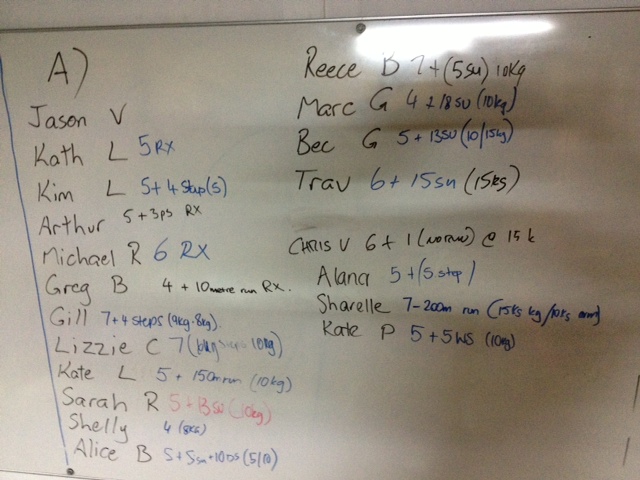 A)
Jason V
Kath L 5 RX
Kim L 5 + 4 Step (5)
Arthur 5 + 3ps RX
Michael R 6 RX
Greg B 4 + 10 metre run RX.
Gill 7 + 4 steps (9kg - 8kg).
Lizzie C 7 10kg)
Kate L 5 + 150m run (10kg)
Sarah R 5 + 13su (10kg)
Shelly 4 (8kg)
Alice B 5 + 5su + 10 (5/10)
Reece B 7 + (5su) 10kg
Marc G 4 + 18su (10kg)
Bec G 5 + 13su (10/15kg)
Trav 6 + 15su (15kg)
CHRIS V 6 + 1 @ 15k
Alana 5 + (5 step)
Sharelle 7 - 200m run (15kg /10kg
Kate P 5 + 5WS (10kg)